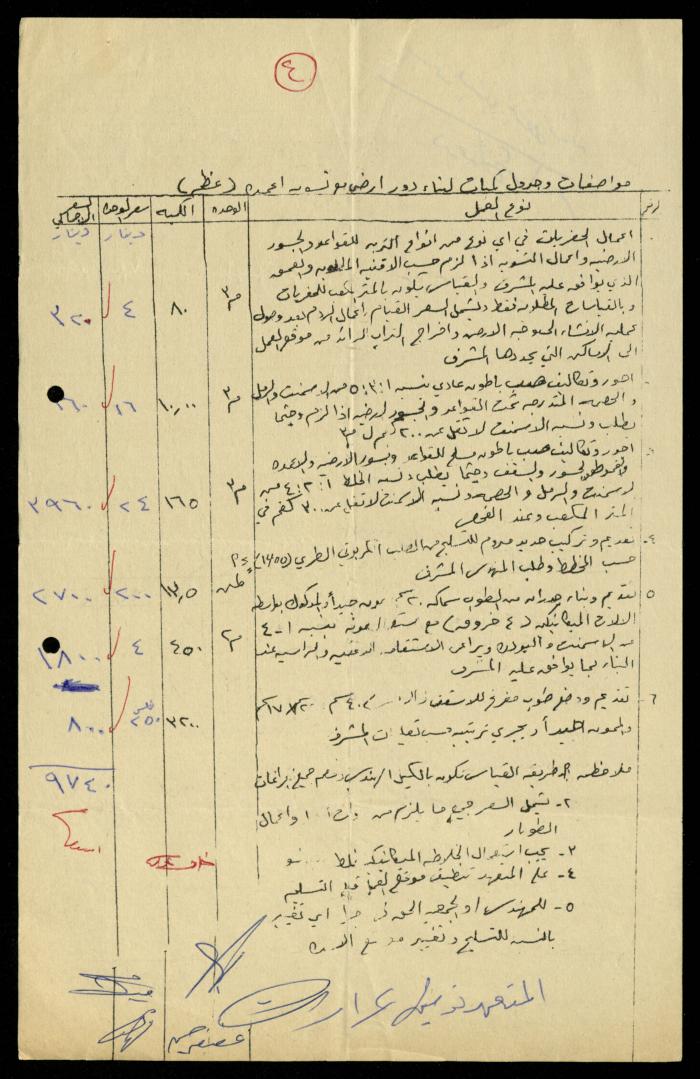 ٤
مواصفات وجدول كميات لبناء دور ارضي مع تسوية اعمده (عظم)
نوع العمل الوحده الكميه سعر الوحده السعر الاجمالي
دينار دينار
اعمال الحفريات في اي نوع من انواع التربه للقواعد والجسور
الارضيه واعمال التسويه اذا لزم حسب الاقنيه المطلوبه والعمق
الذي يوافق عليه المشرف والقياس يكون بالمتر المكعب للحفريات
وبالقياسات المطلوبه فقط ويشمل السعر القيام باعمال الردم بعد وصول
عملية الانشاء الى وجه الارض واخراج التراب الزائد من موقع العمل
الى الاماكن التي يحددها المشرف
م٣ ٨٠ ٤ ٣٢٠
اجور وتكاليف صب باطون عادي بنسبة ١:٣:٥ من الاسمنت والرمل
والحصمه المتدرجه تحت القواعد والجسور الارضيه اذا لزم وحيثما
يطلب ونسبة الاسمنت لا تقل عن ٢٠٠ كغم لكل م٣
م٣ ١٠,٠٠ ١٦ ١٦٠
اجور وتكاليف صب باطون مسلح للقواعد وجسور الارضيه والاعمده
والجسور والسقف وحيثما يطلب ونسبة الخلط ١:٢:٤ من
الاسمنت والرمل والحصمه ونسبة الاسمنت لا تقل عن ٣٠٠ كغم في
المتر المكعب وعند الفحص
م٣ ١٦٥ ٢٤ ٣٩٦٠
٤- تقديم وتركيب حديد مبروم للتسليح من الصلب الكربوني الطري
حسب المخطط وطلب المهندس المشرف
طن ١٣,٥ ٢٠٠ ٢٧٠٠
٥ تقديم وبناء جدران من الطوب سماكة ٢٠ سم يكون جيداً والمدكوك بواسطة
الالات الميكانيكيه (٤ خروق) مع مونه بنسبة ١-٤
من الاسمنت والبودره ويراعى الاستقامه الافقيه والراسيه عند
البناء بما يوافق عليه المشرف
م٢ ٤٥٠ ٤ ١٨٠٠
٦- تقديم ووضع طوب مفرغ للاسقف ٤٠سم ١٧سم
والمونه ويجري ترتيبه حسب تعليمات المشرف
٣٢٠٠ ٢٥٠ فلس ٨٠٠
٩٧٤٠
ملاحظه ١- طريقة القياس تكون بالكيل الهندسي وتخصم جميع الفراغات
٢- يشمل السعر جميع ما يلزم من واعمال
الطوبار
٣- يجب استعمال الخلاطه الميكانيكيه
٤- على المتعهد تنظيف موقع قبل التسليم
٥- للمهندس او الجمعيه الحق في اجراء اي تغيير
بالنسبه للتسليح وتغيير
المتعهد